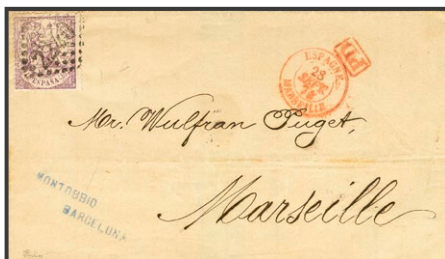 ESPAÑA
ESPAGNE
25
SEPT.
MARSEILLE
PD
Mr. Wulfran Puget,
MONTOBBIO
BARCELONA
Marseille